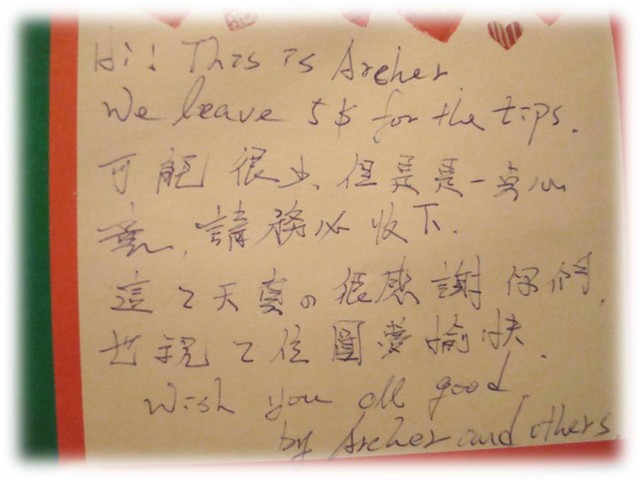 Hi! This is Archer
We leave 5$ for the tips.
可能很少、但是是一点心
意,請務必收下.
這2天真の很感謝你們,
也祝2位圓夢愉快.
Wish you all good.
by Archer and others.